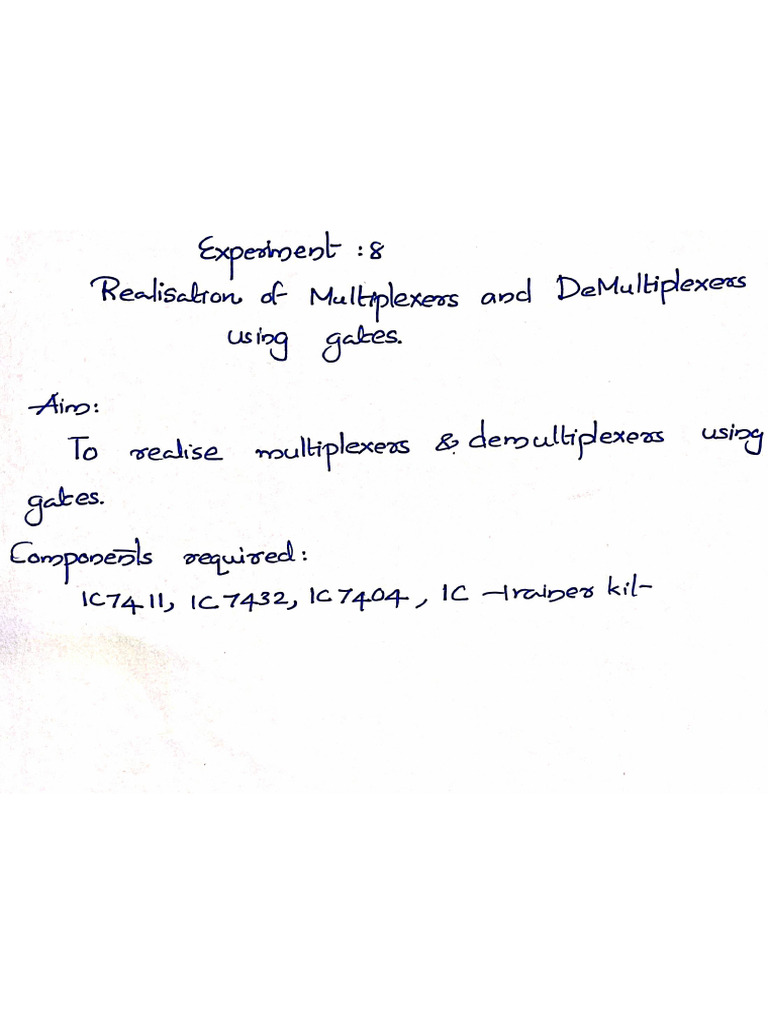 Experiment : 8
Realisation of Multiplexers and DeMultiplexers
using gates.
Aim:
To realise multiplexers & demultiplexers using
gates.
Components required:
IC7411, IC7432, IC7404, IC trainer kit